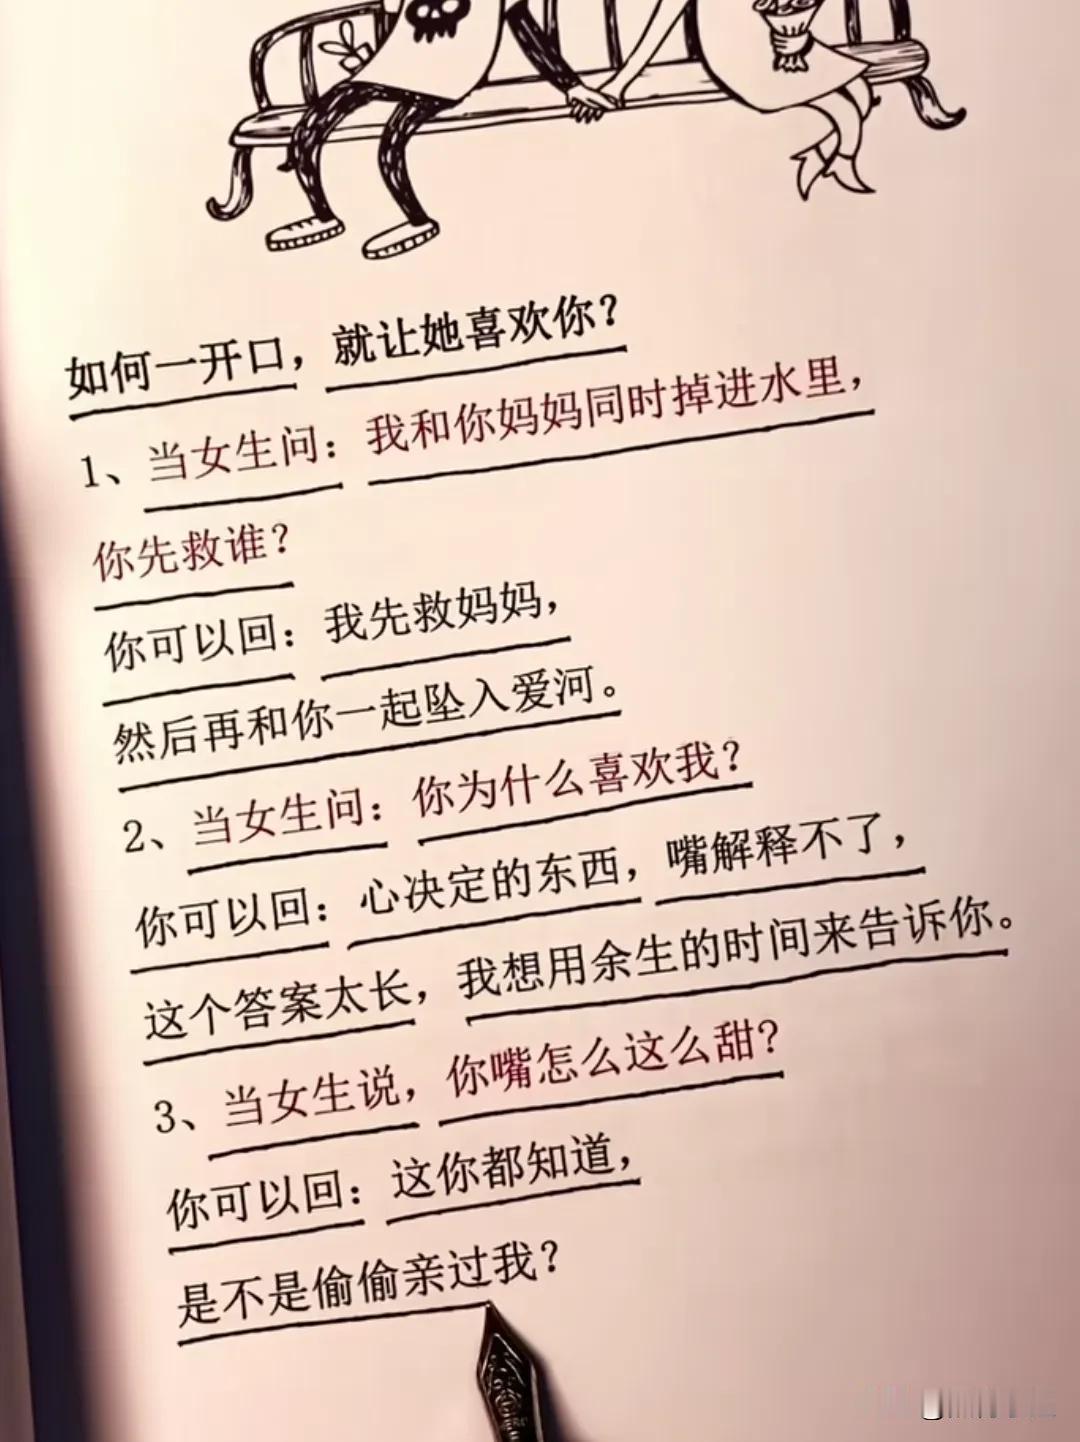 如何一开口，就让她喜欢你？
1、当女生问：我和你妈妈同时掉进水里，
你先救谁？
你可以回：我先救妈妈，
然后再和你一起坠入爱河。
2、当女生问：你为什么喜欢我？
你可以回：心决定的东西，嘴解释不了，
这个答案太长，我想用余生的时间来告诉你。
3、当女生说，你嘴怎么这么甜？
你可以回：这你都知道，
是不是偷偷亲过我？